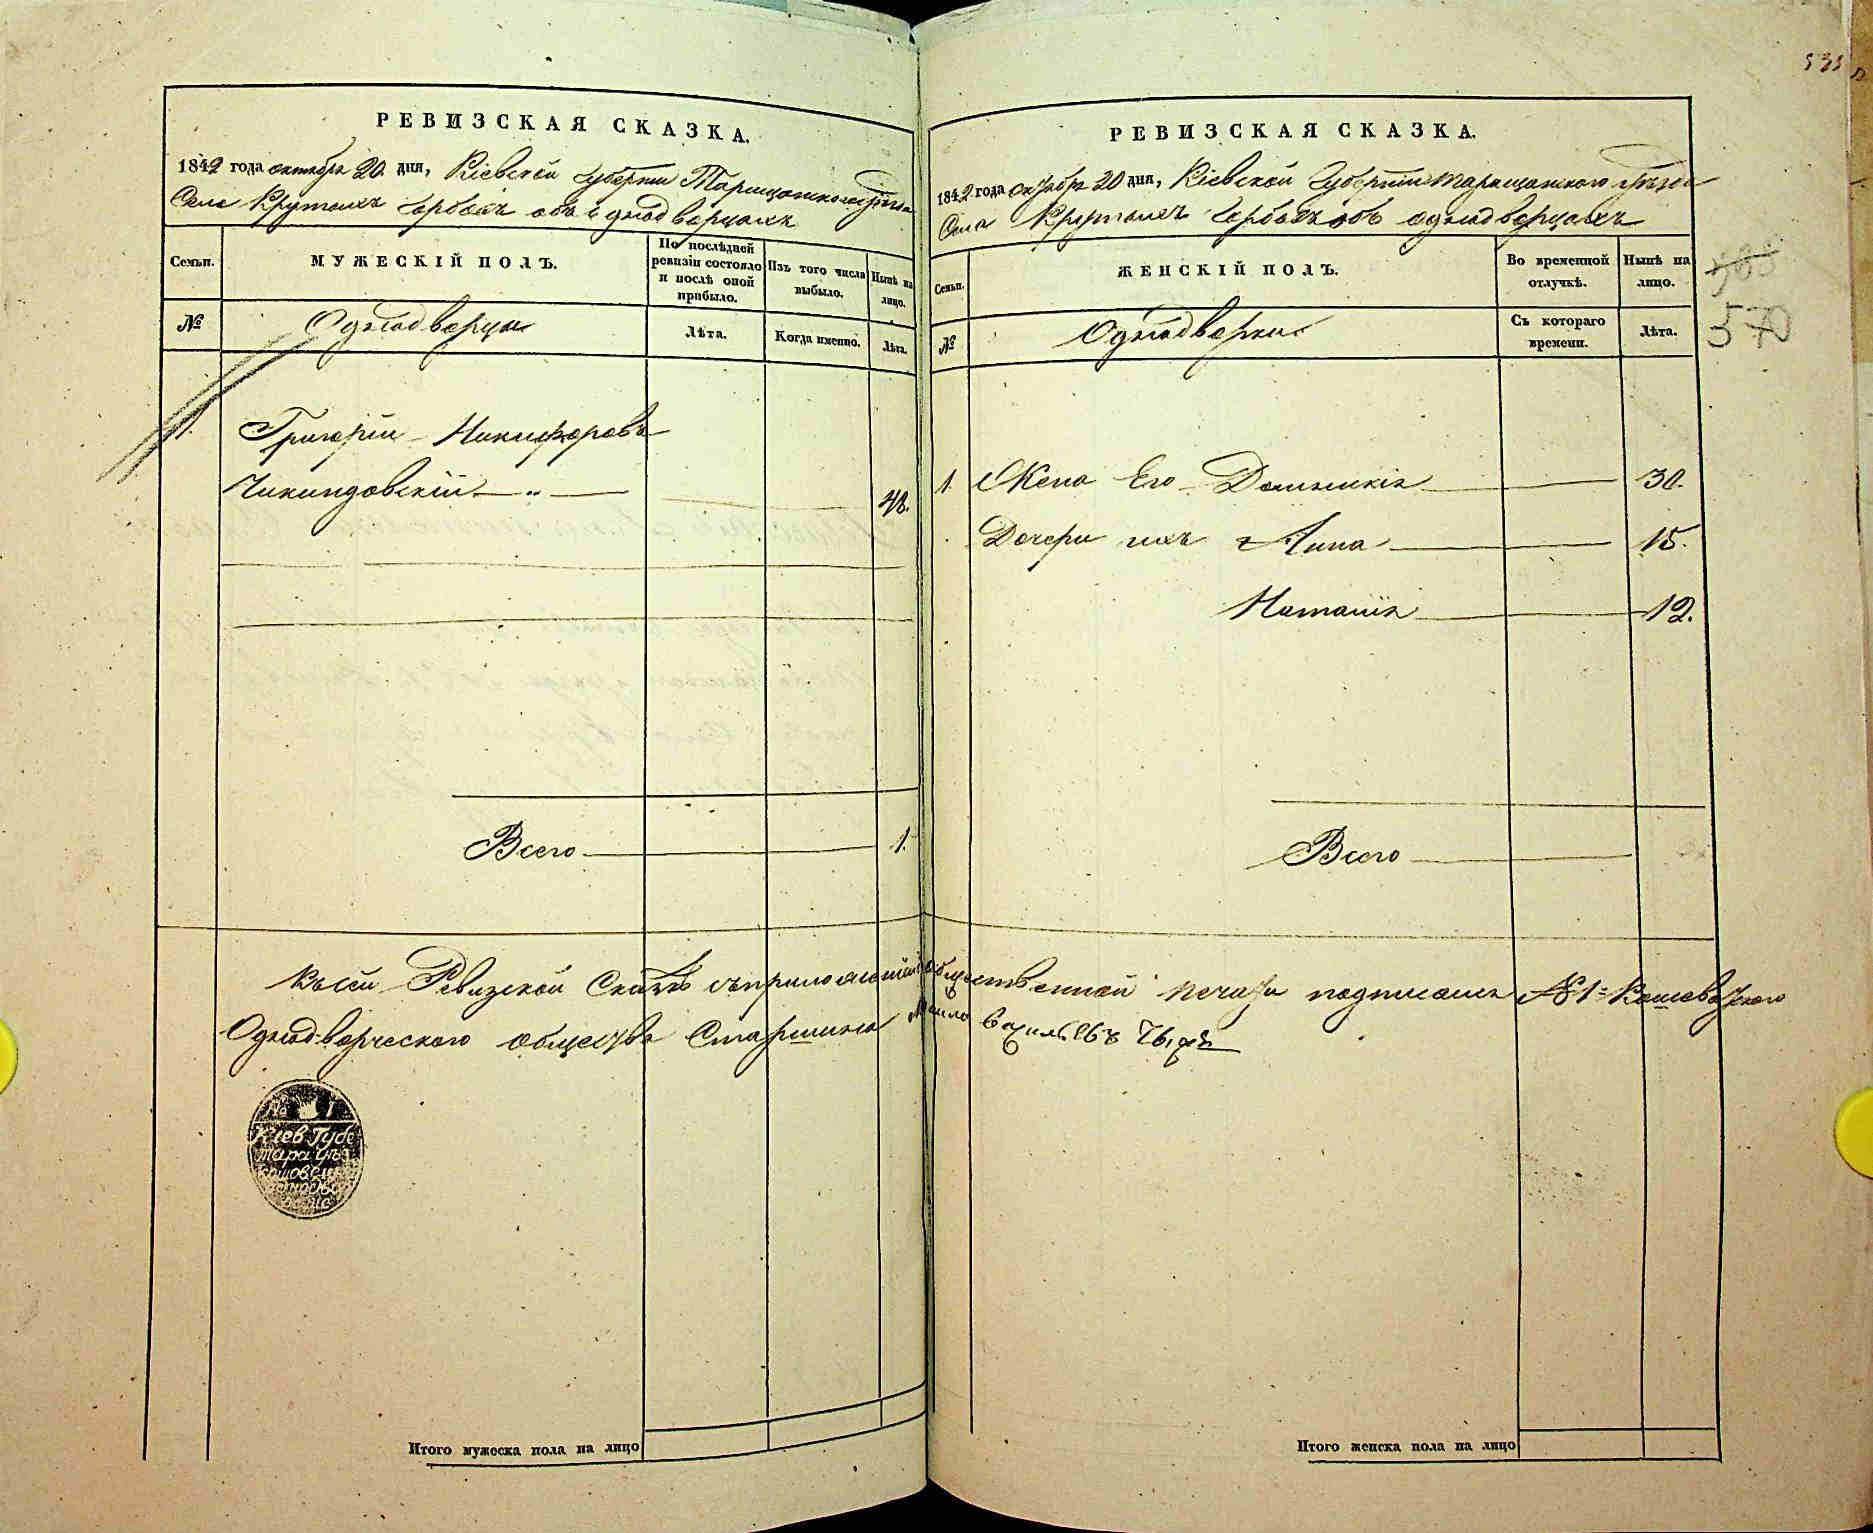 РЕВИЗСКАЯ СКАЗКА.
1842 года октября 20 дня, Кіевской Губерніи Таращанского уѣзда
Села Крутыхъ Горбовъ объ однодворцахъ
Семьи.
МУЖЕСКІЙ ПОЛЪ.
По послѣдней ревизіи состояло и послѣ оной прибыло.
Изъ того числа выбыло.
Нынѣ на лицо.
№
Однодворцы
Лѣта.
Когда именно.
Лѣта.
1.
Григорій Никифоровъ
Чикиндовскій — " —
48.
Всего 1.
Итого мужеска пола на лицо
535
РЕВИЗСКАЯ СКАЗКА.
1842 года октября 20 дня, Кіевской Губерніи Таращанского уѣзда
Села Крутыхъ Горбовъ объ однодворцахъ
568
570
Семьи.
ЖЕНСКІЙ ПОЛЪ.
Во временной отлучкѣ.
Нынѣ на лицо.
№
Однодворки
Съ котораго времени.
Лѣта.
1. Жена Его Доминикія 30.
Дочери ихъ Анна 15.
Наталія 12.
Всего
Къ сей Ревизской Сказкѣ съ приложеніемъ общественной печати подписался № 1 Кашеватского
Однодворческого общества Старшина
№ 1
Кіев Губе
тара уѣз
Итого женска пола на лицо